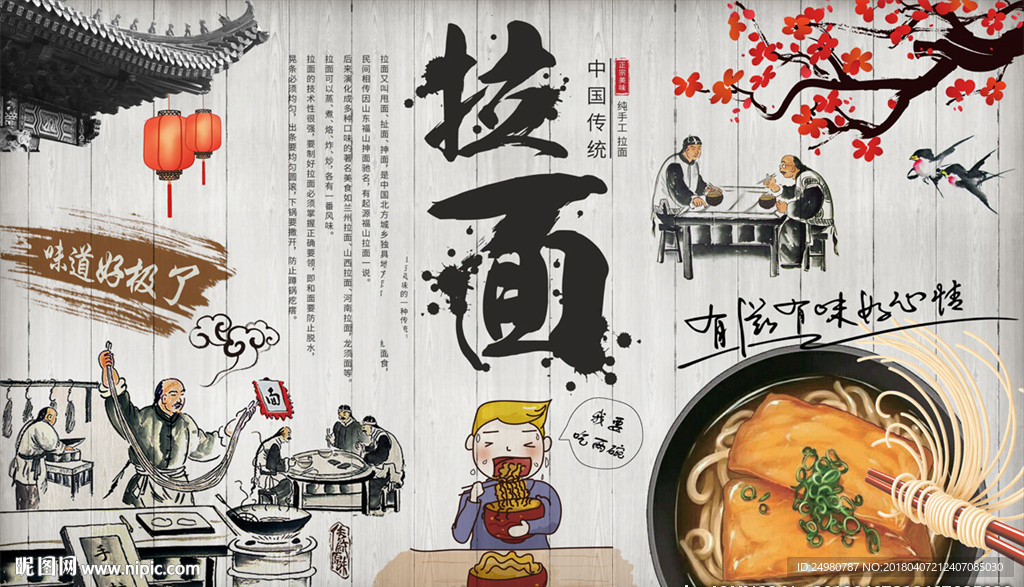 拉面
中国传统
正宗美味
纯手工 拉面
拉面又叫甩面、扯面、抻面,是中国北方城乡独具
的一种传
面食,
民间相传因山东福山抻面驰名,有起源福山拉面一说。
后来演化成多种口味的著名美食如兰州拉面、山西拉面、河南拉面,龙须面等。
拉面可以蒸、煮、烙、炸、炒,各有一番风味。
拉面的技术性很强,要制好拉面必须掌握正确要领,即和面要防止脱水,
晃条必须均匀,出条要均匀圆滚,下锅要撒开,防止蹲锅疙瘩。
味道好极了
有滋有味好心情
面
我要
吃两碗
手
昵图网 www.nipic.com
ID:24980787 NO:20180407212407085030